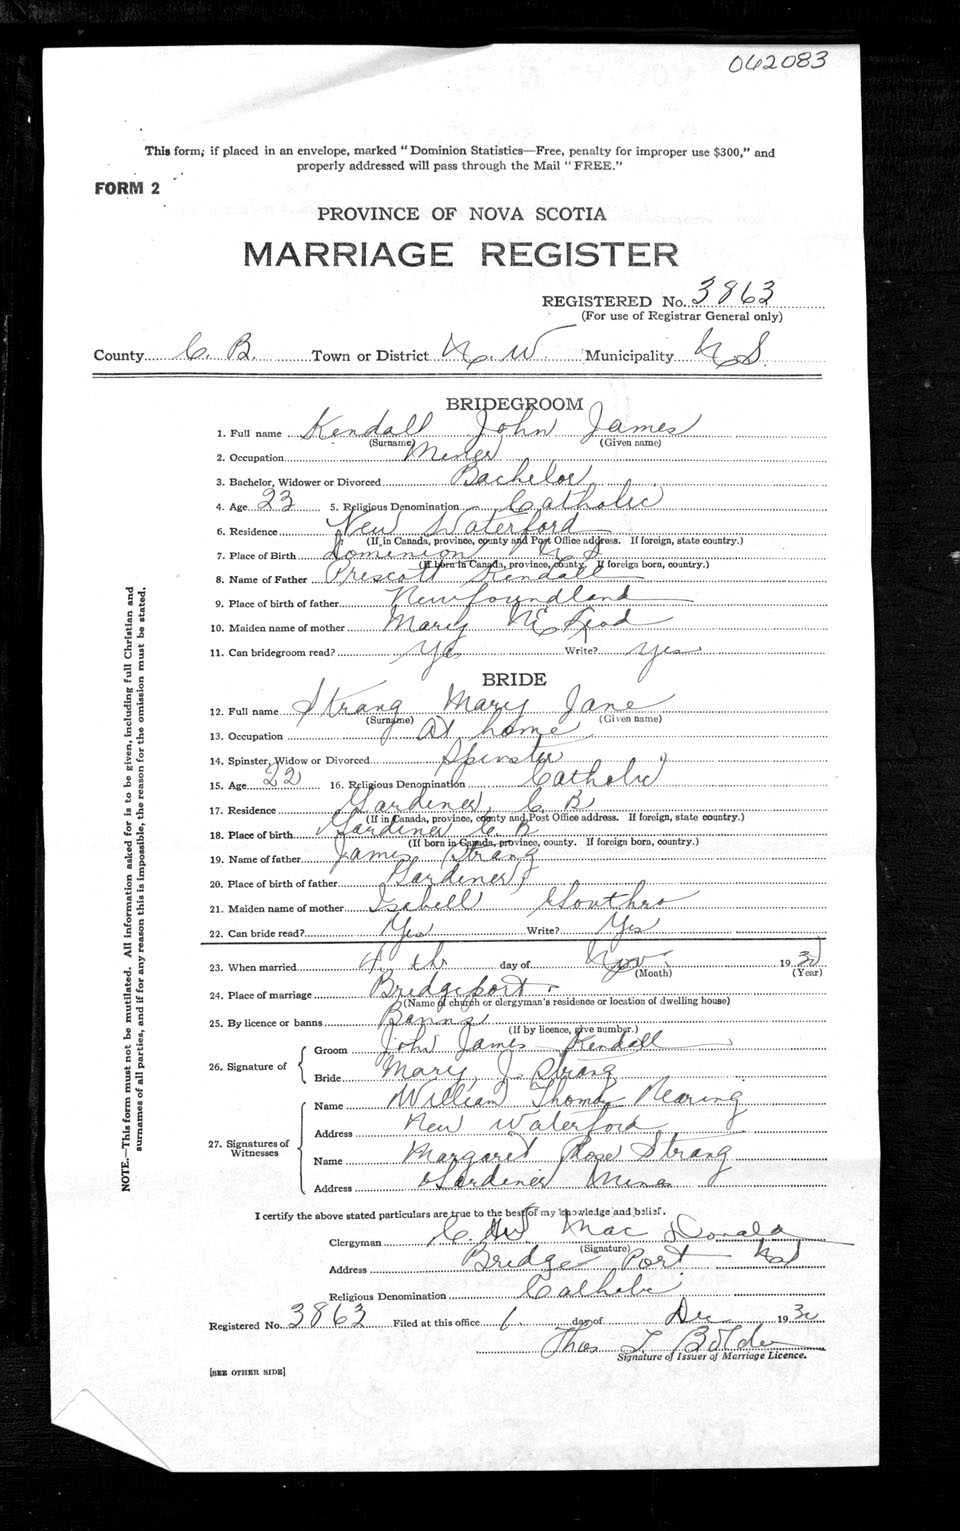 062083
This form; if placed in an envelope, marked "Dominion Statistics—Free, penalty for improper use $300," and
properly addressed will pass through the Mail "FREE."
FORM 2
PROVINCE OF NOVA SCOTIA
MARRIAGE REGISTER
REGISTERED No. 3863
(For use of Registrar General only)
County C. B. Town or District N. W Municipality N S.
BRIDEGROOM
1. Full name Kendall John James
(Surname) (Given name)
2. Occupation Miner
3. Bachelor, Widower or Divorced Bachelor
4. Age 23 5. Religious Denomination Catholic
6. Residence New Waterford
(If in Canada, province, county and Post Office address. If foreign, state country.)
7. Place of Birth Dominion N S
(If born in Canada, province, county. If foreign born, country.)
8. Name of Father Prescott Kendall
9. Place of birth of father Newfoundland
10. Maiden name of mother Mary McLeod
11. Can bridegroom read? Yes Write? Yes
BRIDE
12. Full name Strang Mary Jane
(Surname) (Given name)
13. Occupation At home
14. Spinster, Widow or Divorced Spinster
15. Age 22 16. Religious Denomination Catholic
17. Residence Gardiner, C B
(If in Canada, province, county and Post Office address. If foreign, state country.)
18. Place of birth Gardiner C B
(If born in Canada, province, county. If foreign born, country.)
19. Name of father James Strang
20. Place of birth of father Gardiner
21. Maiden name of mother Isabell
22. Can bride read? Yes Write? Yes
23. When married 4 th day of Nov 1930
(Month) (Year)
24. Place of marriage Bridgeport
(Name of church or clergyman's residence or location of dwelling house)
25. By licence or banns Banns
(If by licence, give number.)
26. Signature of
Groom John James Kendall
Bride Mary J. Strang
27. Signatures of Witnesses
Name William Thomas Nearing
Address New Waterford
Name Margaret Rose Strang
Address Gardiner Mines
I certify the above stated particulars are true to the best of my knowledge and belief.
Clergyman C. Mac Donald
(Signature)
Address Bridge Port N S
Religious Denomination Catholic
Registered No. 3863 Filed at this office 6 day of Dec 1930
Thos L
Signature of Issuer of Marriage Licence.
[SEE OTHER SIDE]
NOTE.—This form must not be mutilated. All information asked for is to be given, including full Christian and
surnames of all parties, and if for any reason this is impossible, the reason for the omission must be stated.